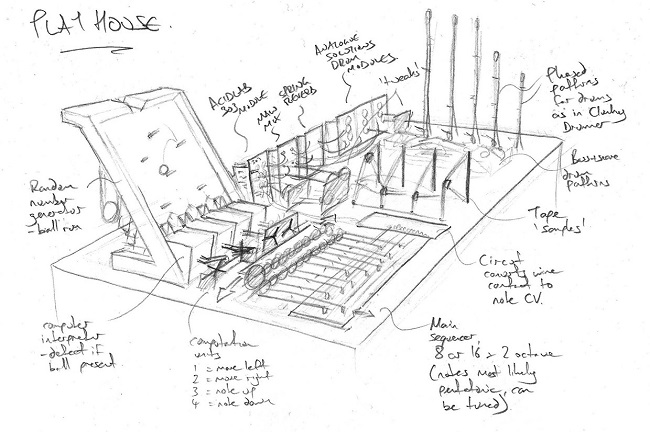 PLAY HOUSE.
ACIDLAB
303 MODULE
MAIN
MIX
SPRING
REVERB
ANALOGUE
SOLUTIONS
DRUM
MODULES
'tweaks'
Phased
patterns
for drums
as in Clunky
Drummer
drum
patterns
Random
number
generator
- ball run
Tape
'samples'
Circuit
converts wire
contact to
note CV.
computer
interpreter
- detect if
ball present
computation
units
1 = move left
2 = move right
3 = note up
4 = note down
Main
sequencer,
8 or 16 x 2 octave
(notes most likely
pentatonic, can
be tuned).